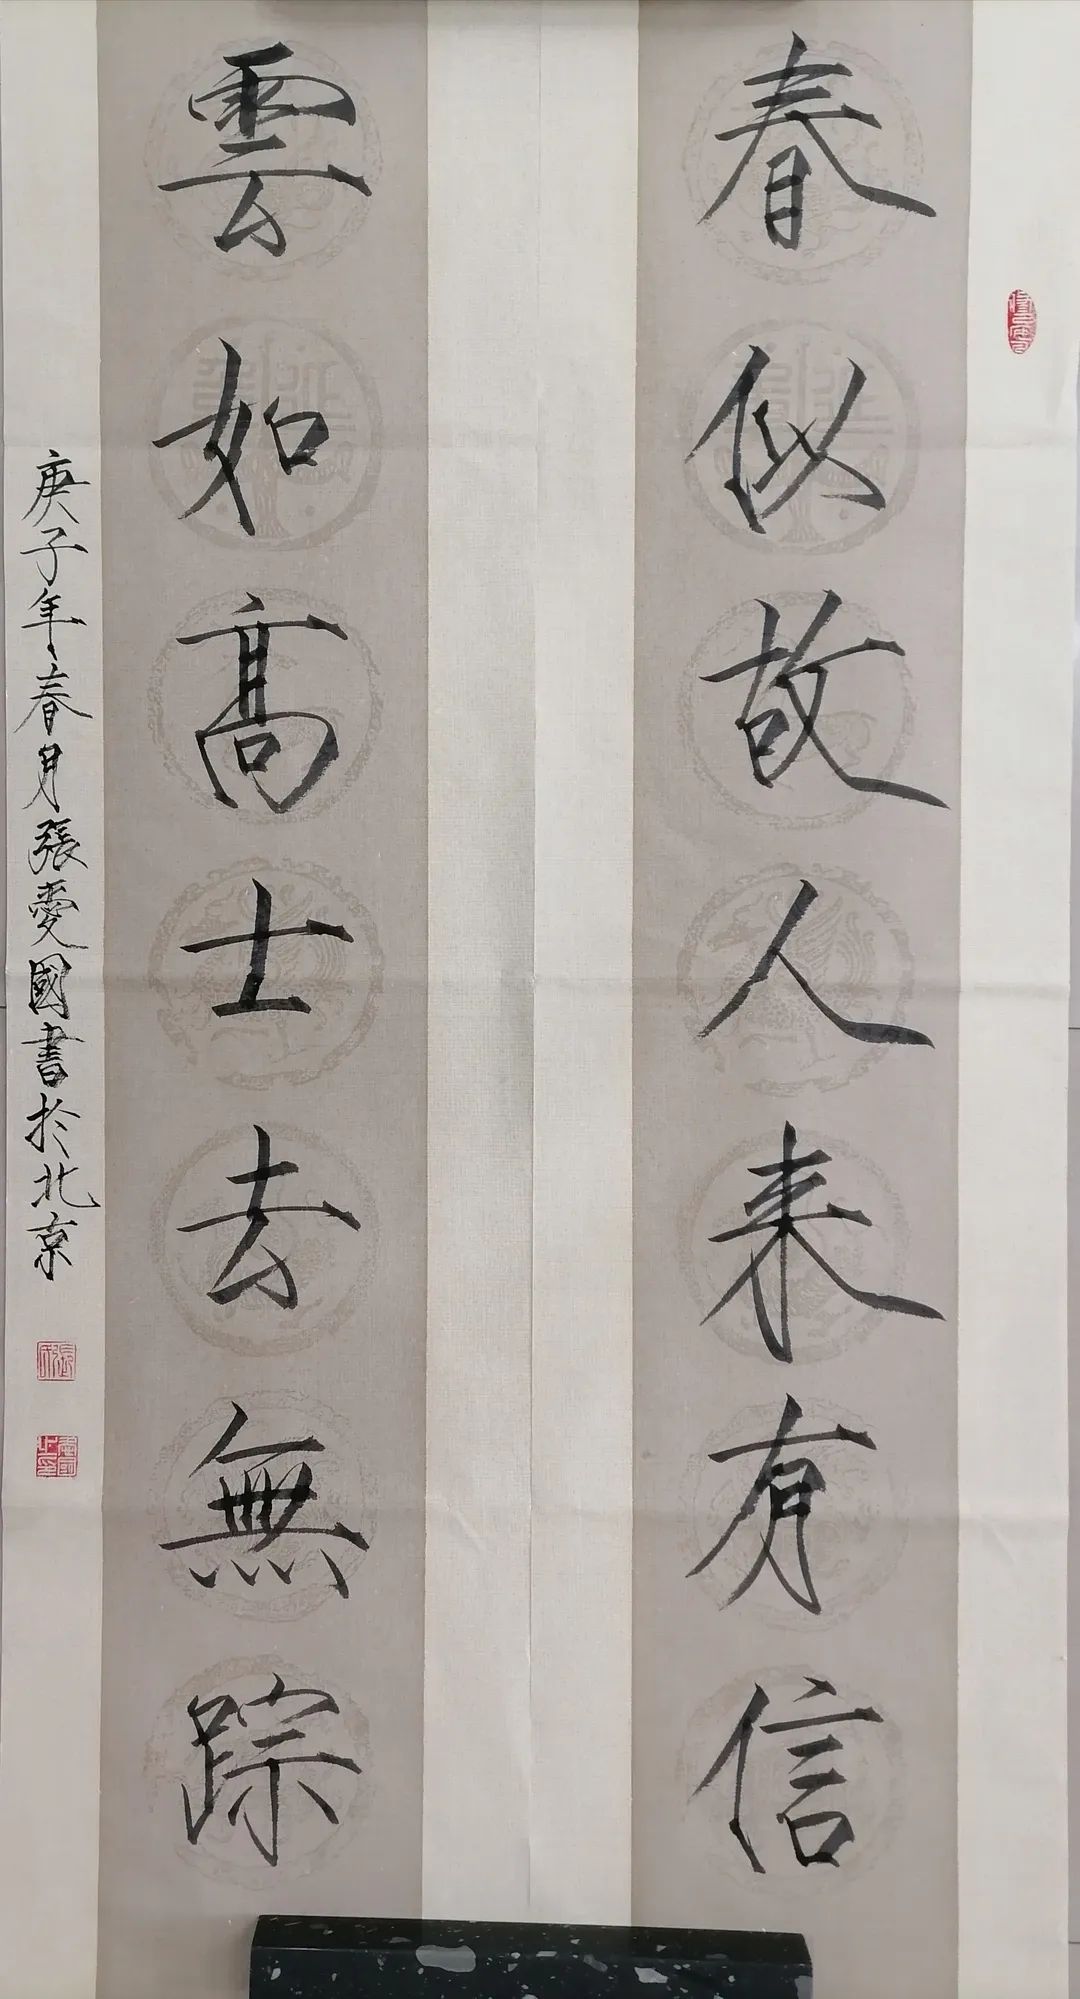 春似故人来有信
雲如高士去無踪
庚子年春月張愛國書於北京